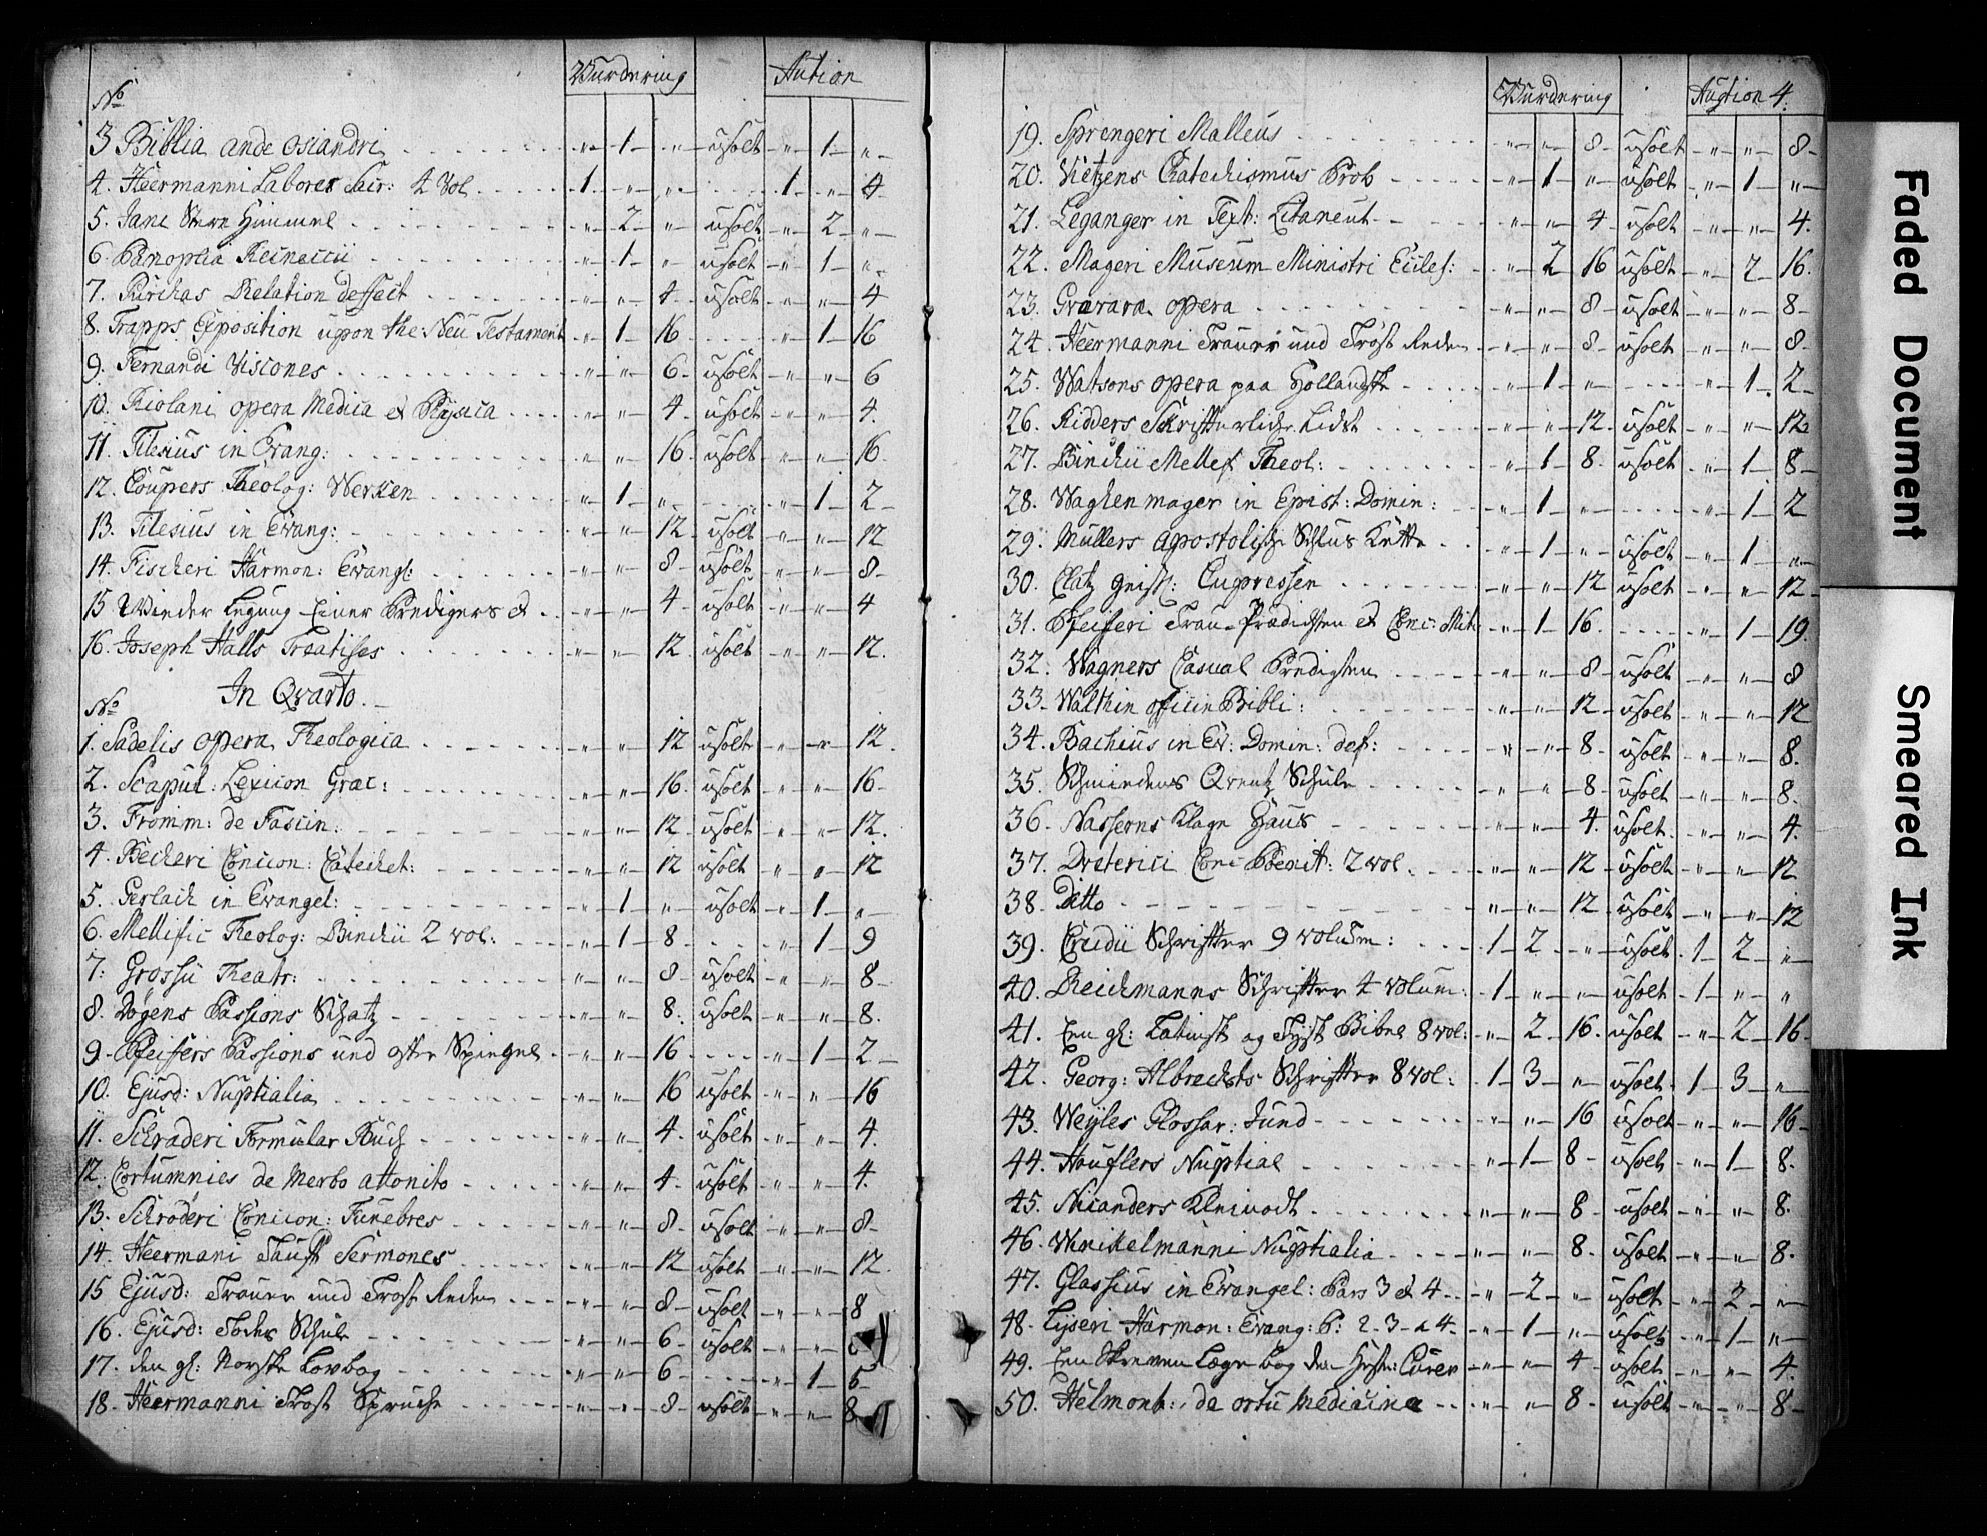 No Vurdering Aution
3 Biblia ande Osiandri - „ - 1 - „ - usolt - „ - 1 - „
4. Heermanni Labores Sacr: 4 Vol - 1 - „ - „ - 1 - „ - 4
5. Jane Stern Himmel - „ - 2 - „ - usolt - „ - 2 - „
6. Panoplia Reineccii - „ - 1 - „ - usolt - „ - 1 - „
7. Purchas Relation deffect - „ - „ - 4 - usolt - „ - „ - 4
8. Trapps Exposition upon the Neu Testament - „ - 1 - 16 - „ - 1 - 16
9. Fernandi Visiones - „ - „ - 6 - usolt - „ - „ - 6
10. Riolani opera Medica et Physica - „ - „ - 4 - usolt - „ - „ - 4.
11. Tilesius in Evang: - „ - „ - 16 - usolt - „ - „ - 16
12. Coupers Theolog: Werken - „ - 1 - „ - „ - 1 - 2
13. Tilesius in Evang: - „ - „ - 12 - usolt - „ - „ - 12
14. Fischeri Harmon: Evangl: - „ - „ - 8 - usolt - „ - „ - 8
15 Wieder Legung Einer Predigers et - „ - „ - 4 - usolt - „ - „ - 4
16. Joseph Halls Treatises - „ - „ - 12 - usolt - „ - „ - 12.
In Qvarto.
No
1. Sadelis opera Theologica - „ - „ - 12 usolt - „ - „ - 12.
2. Scapul. Lexicon Græc: - „ - „ - 16. usolt - „ - „ - 16
3. Fromm: de Fascin: - „ - „ - 12 usolt - „ - „ - 12.
4. Becheri Concion: Catechet: - „ - „ - 12 usolt - „ - „ - 12
5. Gerlach in Evangel: - „ - 1 - „ - usolt - „ - 1 - „
6. Mellific Theolog: Binchii 2 vol: - „ - 1 - 8 - „ - 1 - 9
7. Grossii Theatr: - „ - „ - 8 - usolt - „ - „ - 8
8. Dögens Passions Schatz - „ - „ - 8. usolt - „ - „ - 8.
9. Pfeiffers Passions und oster Spiegel - „ - „ - 16 - „ - 1 - 2
10. Ejusd: Nuptialia - „ - „ - 16 usolt - „ - „ - 16
11. Schraderi Formular Buch - „ - „ - 4 - usolt - „ - „ - 4.
12. Cortumnies de Merbo attonito - „ - „ - 4 - usolt - „ - „ - 4.
13. Schröderi Concion: Funebres - „ - „ - 8 - usolt - „ - „ - 8
14. Heermani Tauff Sermones - „ - „ - 12 usolt - „ - „ - 12.
15 Ejusd: Trauer und Trost Reden - „ - „ - 8 - usolt - „ - „ - 8
16. Ejusd: Todes Schule - „ - „ - 6 - usolt - „ - „
17. den gl: Norske Lovbog - „ - „ - 6 - „ - 1 - 5
18. Heermanni Trost Sprüche - „ - „ - 8 - usolt - „ - „ - 8
Vurdering Auction 4.
19. Sprengeri Malleus - „ - „ - 8 - usolt - „ - „ - 8
20. Vietzens Catechismus Prob - „ - 1 - „ - usolt - „ - 1 - „
21. Leganger in Text: Litaneut - „ - „ - 4 usolt - „ - „ - 4.
22. Mageri Museum Ministri Eccles: - „ - 2 16 usolt - „ - 2 - 16.
23. Gvevara opera - „ - „ - 8 - usolt - „ - „ - 8
24. Heermanni Trauer und Trost Reden - „ - „ - 8 - usolt - „ - „ - 8
25. Watsons opera paa Hollandsk - „ - 1 - „ - „ - 1 - 2
26. Ridders Skrifterliche Lidt - „ - „ - 12 - usolt - „ - „ - 12
27. Binchii Mellef Theol: - „ - 1 - 8 - usolt - „ - 1 - 8
28. Waghenmager in Epist: Domin: - „ - 1 - „ - „ - 1 - 2
29. Mullers Apostolische Schlus Kette - „ - 1 - „ - usolt - „ - 1 - „
30. Clatz geistl: Cupressen - „ - „ - 12 usolt - „ - „ - 12
31. Pfeiferi Trau-Prædichten et Conc: Mit: - „ - 1 - 16 - „ - 1 - 19.
32. Wagners Casual Predigten - „ - „ - 8 - usolt - „ - „ - 8
33. Walthin oficin Bibli: - „ - „ - 12 - usolt - „ - „ - 12
34. Bachius in Ev: Domin: def: - „ - „ - 8 - usolt - „ - „ - 8.
35. Schmiedens Creutz Schule - „ - „ - 8 - usolt - „ - „ - 8.
36. Nasserns Klage Haus - „ - „ - 4. usolt - „ - „ - 4.
37. Dreterici Conc Poenit: 2 vol. - „ - „ - 12 - usolt - „ - „ - 12
38. Ditto - „ - „ - 12 - usolt - „ - „ - 12
39. Crudii Schriffter 9 volum: - 1 - 2 - „ - usolt - 1 - 2 - „
40. Reichmanns Schriffter 4 volum: - 1 - „ - „ - usolt - 1 - „ - „
41. Een gl: Latinsk og Tydsk Bibel 8 vol: - „ - 2 - 16 - usolt - „ - 2 - 16
42. Georg: Albrechts Schriffter 8 vol: - 1 - 3 - „ - usolt - 1 - 3 - „
43. Weyles Glossar: Jund - „ - „ - 16 usolt - „ - „ - 16
44. Houflers Nuptial - „ - 1 - 8 - usolt - „ - 1 - 8.
45. Nicanders Kleinodt - „ - „ - 8 - usolt - „ - „ - 8.
46. Winckelmanni Nuptialia - „ - „ - 8. usolt - „ - „ - 8.
47. Glassius in Evangel: Pars 3 et 4 - „ - 2 - „ - usolt - „ - 2 - „
48. Lyseri Harmon: Evang: P: 2 - 3 - a 4 - „ - 1 - „ - usolt - „ - 1 - „
49. Een Skreven Læge bog den Heste: Curer - „ - „ - 4 - usolt - „ - „ - 4.
50. Helmont: de ortu Medicinæ - „ - „ - 8 - usolt - „ - „ - 8
Faded Document
Smeared Ink